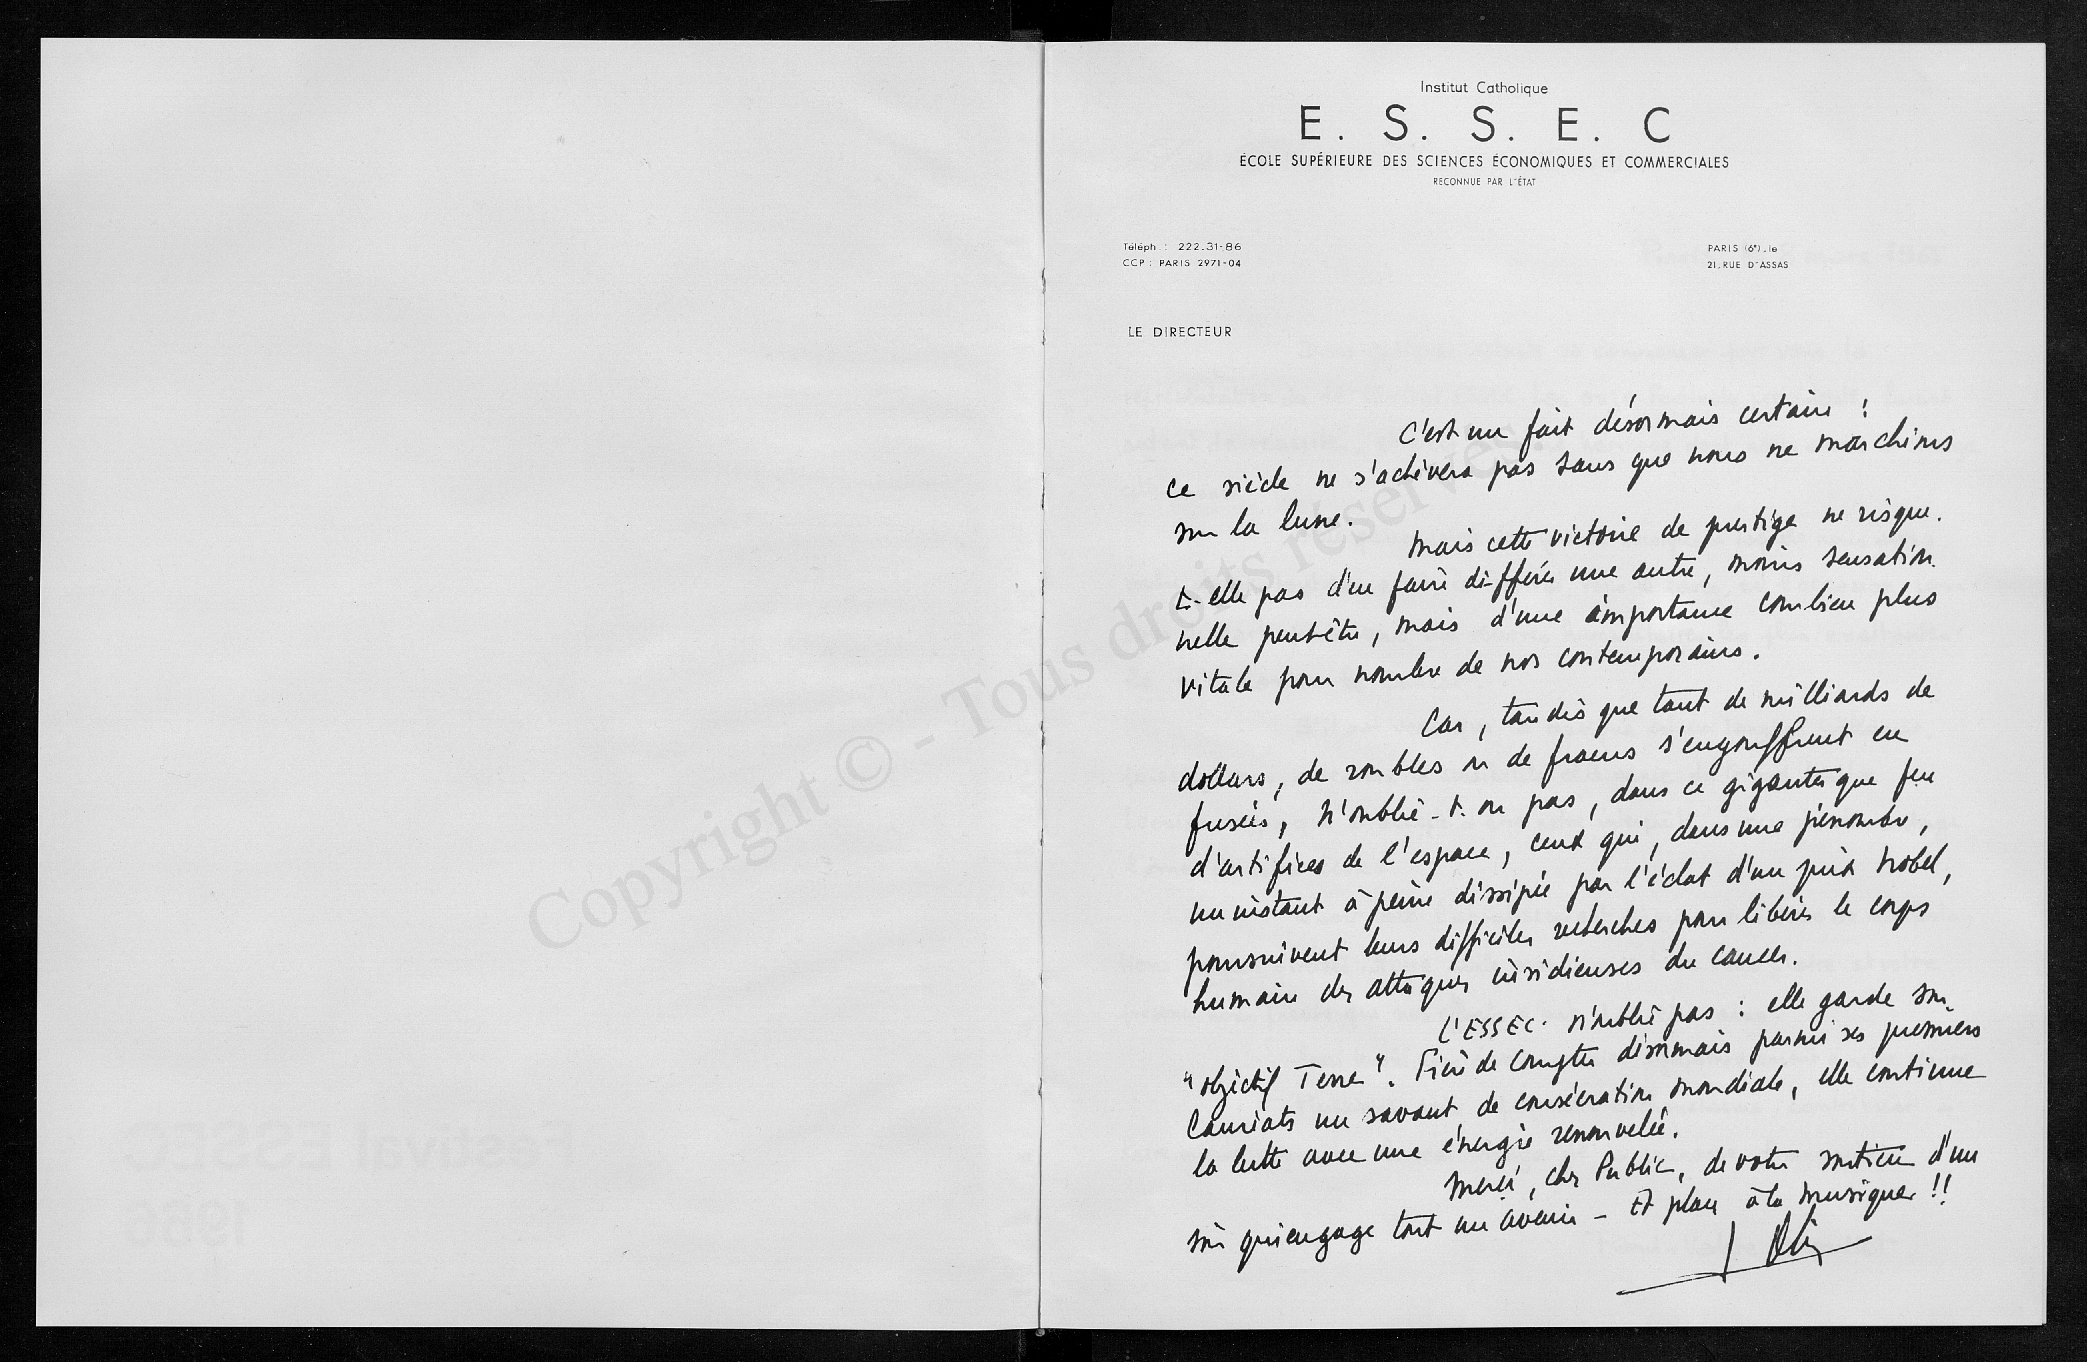 Institut Catholique
E. S. S. E. C
ÉCOLE SUPÉRIEURE DES SCIENCES ÉCONOMIQUES ET COMMERCIALES
RECONNUE PAR L'ÉTAT
Téléph. : 222.31-86
CCP : PARIS 2971-04
PARIS (6e), le
21, RUE D'ASSAS
LE DIRECTEUR
C'est un fait désormais certain :
ce siècle ne s'achèvera pas sans que nous ne marchions
sur la lune.
Mais cette victoire de prestige ne risque-
t-elle pas d'en faire différer une autre, moins sensation-
nelle peut-être, mais d'une importance combien plus
vitale pour nombre de nos contemporains.
Car, tandis que tant de milliards de
dollars, de roubles ou de francs s'engouffrent en
fusées, n'oublie-t-on pas, dans ce gigantesque feu
d'artifices de l'espace, ceux qui, dans une pénombre,
un instant à peine dissipée par l'éclat d'un prix Nobel,
poursuivent leurs difficiles recherches pour libérer le corps
humain des attaques insidieuses du cancer.
L'ESSEC n'oublie pas : elle garde son
"objectif Terre". Fière de compter désormais parmi ses premiers
lauréats un savant de consécration mondiale, elle continue
la lutte avec une énergie renouvelée.
Merci, cher Public, de votre soutien d'un
soir qui engage tout un avenir - Et place à la musique !!
Copyright © - Tous droits réservés
Festival ESSEC